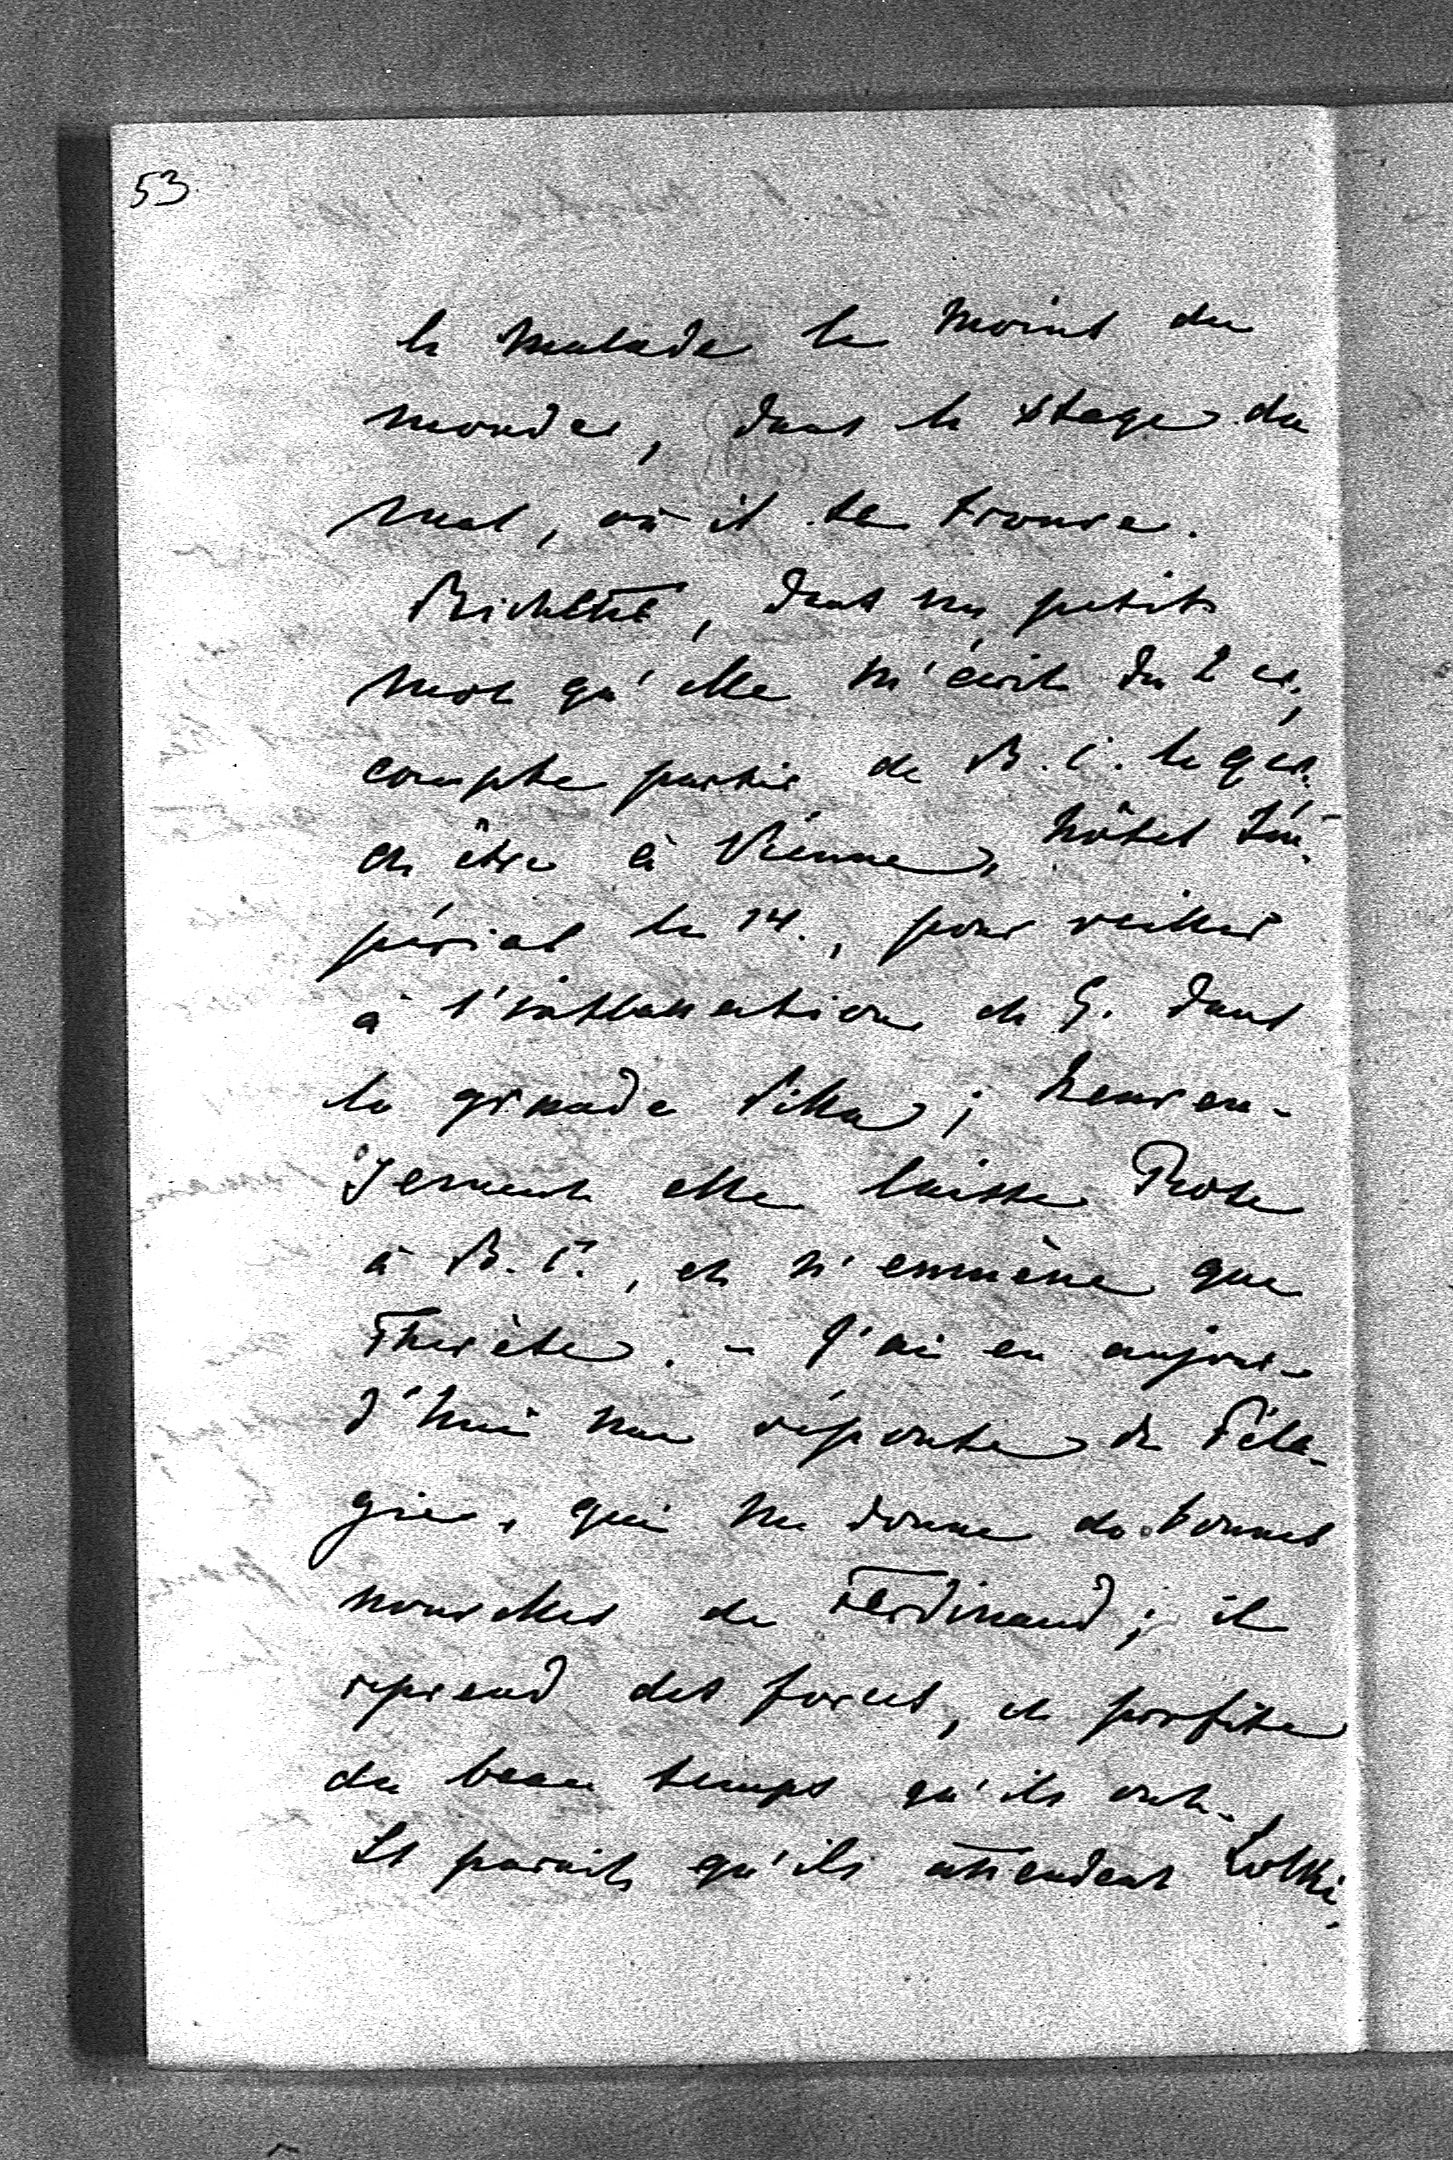 53
le malade le moins du
monde, dans le stage du
mal, où il se trouve.
Richette, dans un petit
mot qu'elle m'écrit du 2 cr,
compte partir de B. C. le 9 cr.
et être à Vienne, hôtel Im-
périal le 14., pour veiller
à l'installation de G. dans
la grande villa; heureu-
sement elle laisse Rose
à B. C., et n'emmène que
Thérèse. – J'ai eu aujour-
d'hui une réponse de Péla-
gie, qui me donne de bonnes
nouvelles de Ferdinand; il
reprend des forces, et profite
du beau temps qu'ils ont.
Il paraît qu'ils attendent